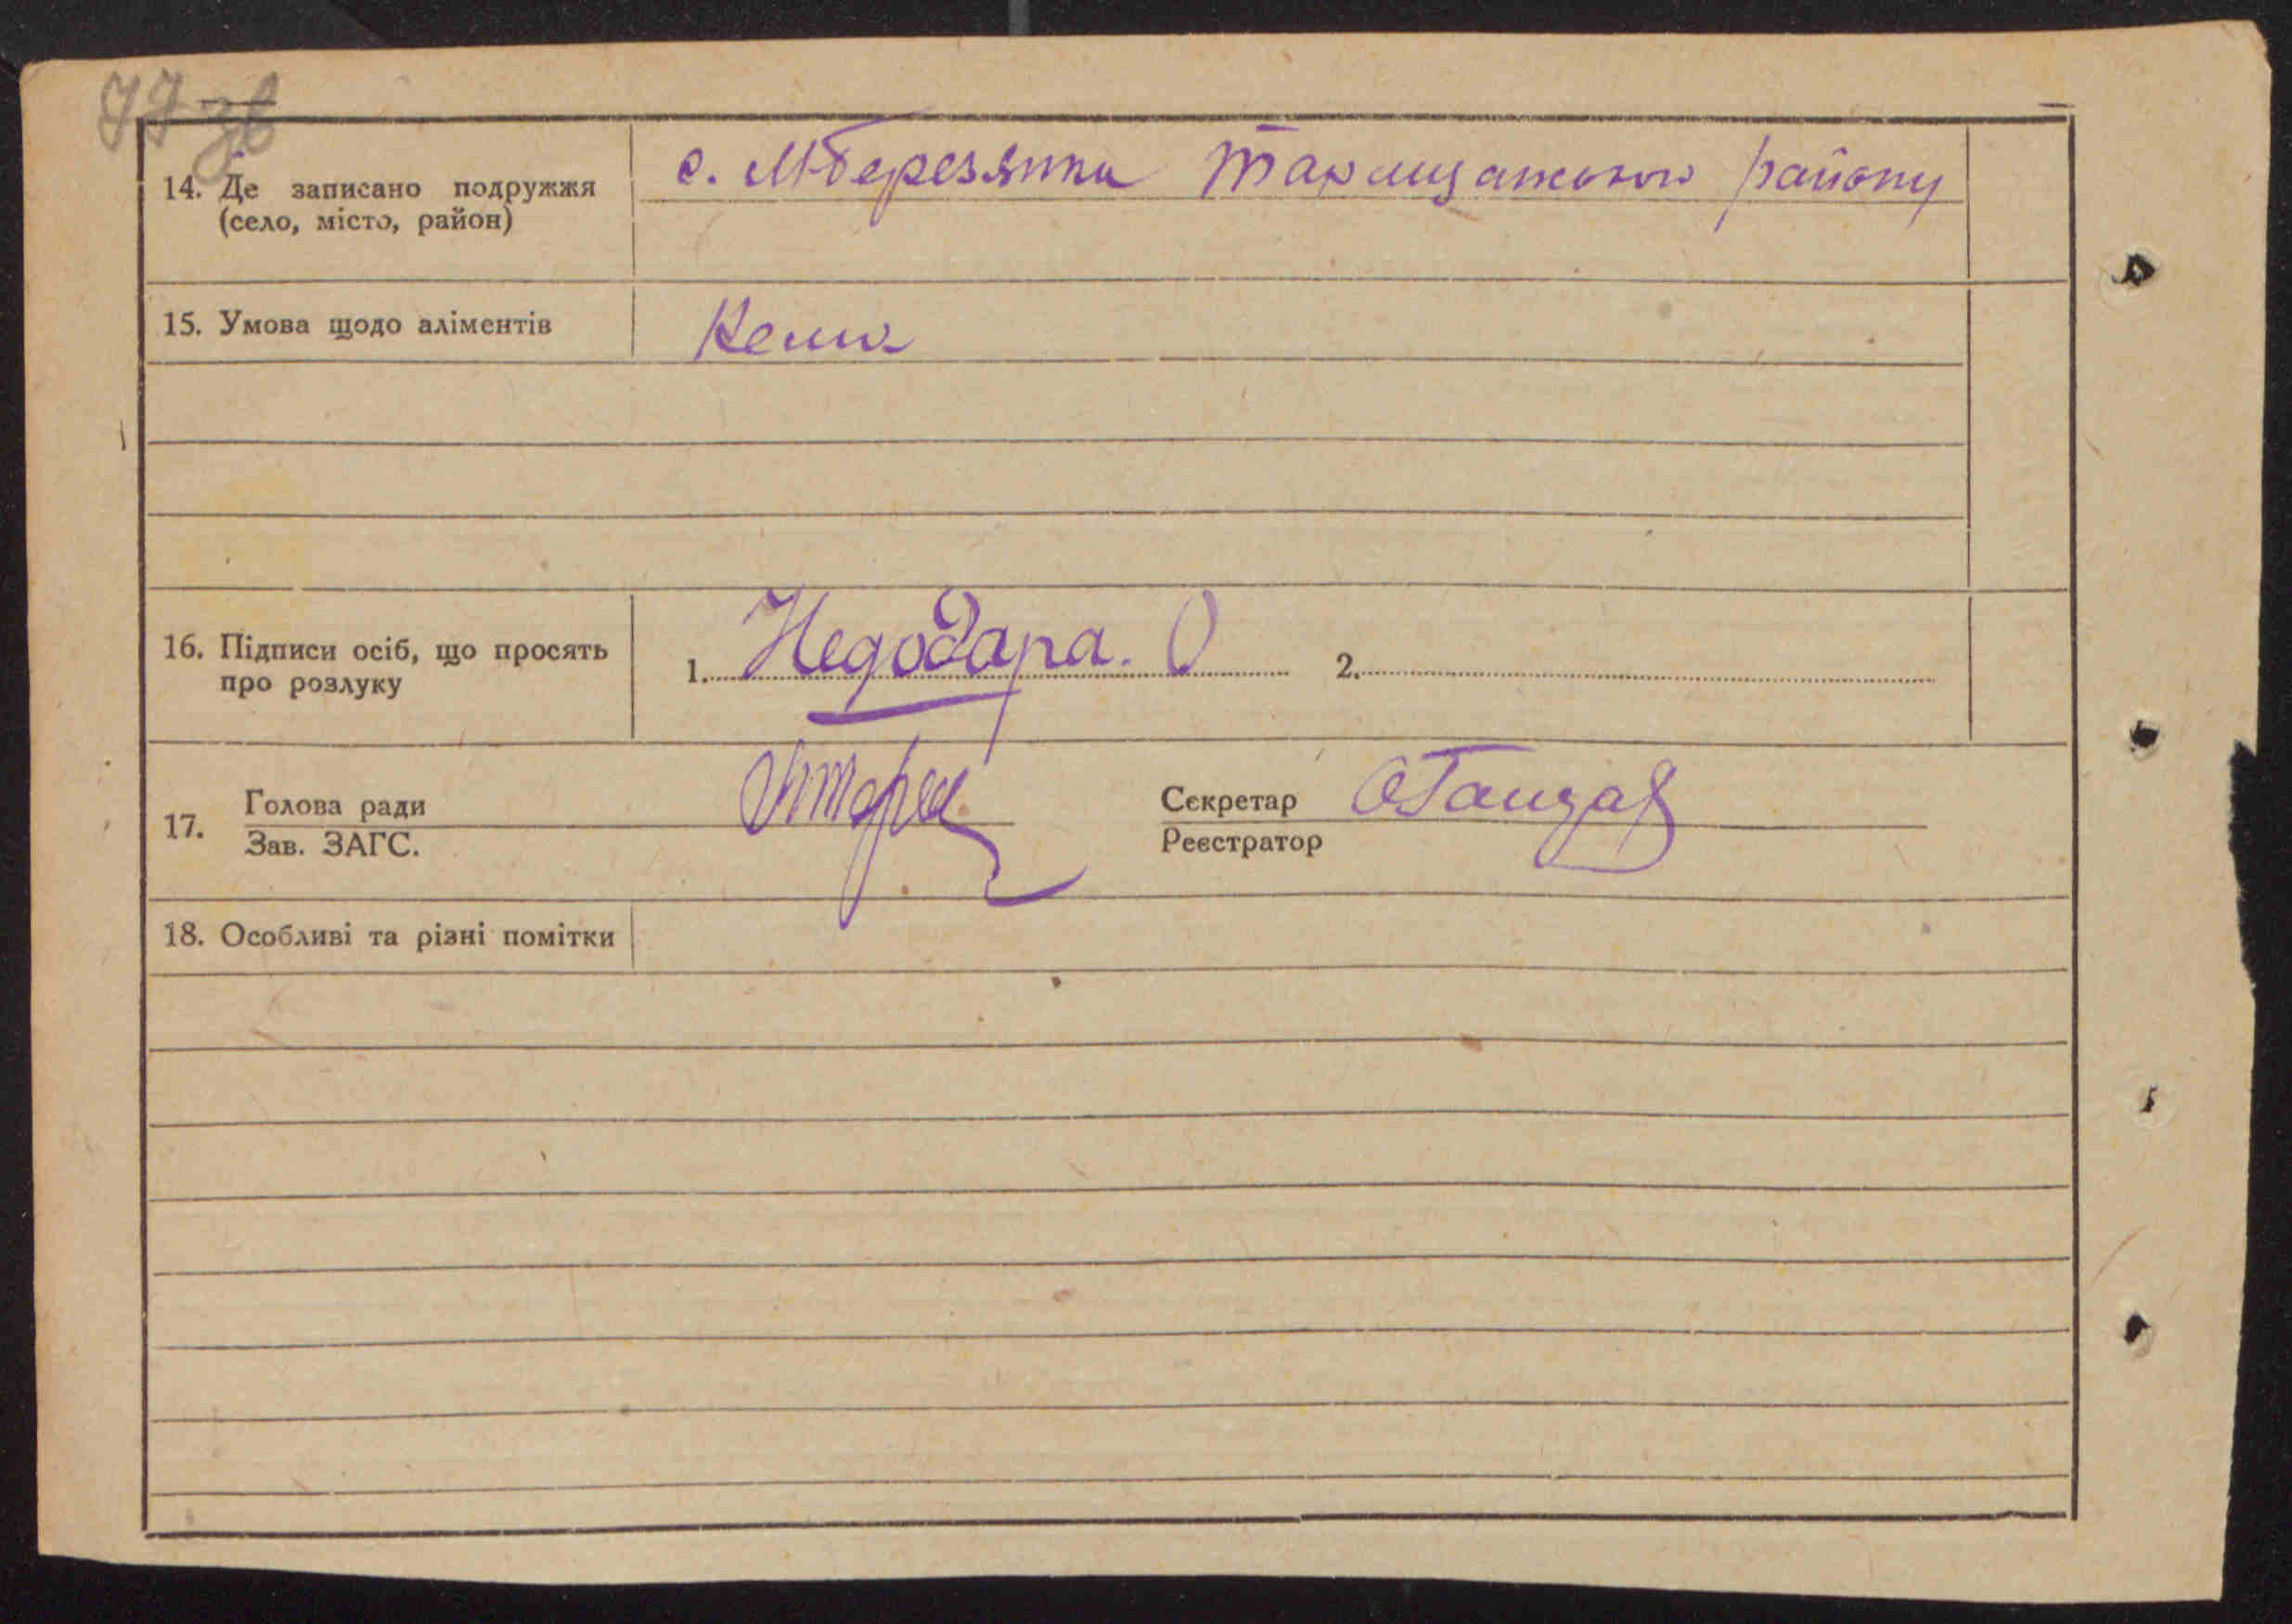 77 зв
14. Де записано подружжя с. М-Березянка Таращанського району
(село, місто, район)
15. Умова щодо аліментів Нема
16. Підписи осіб, що просять
про розлуку 1. Недодара. О 2.
17. Голова ради Секретар
Зав. ЗАГС. Реєстратор
18. Особливі та різні помітки